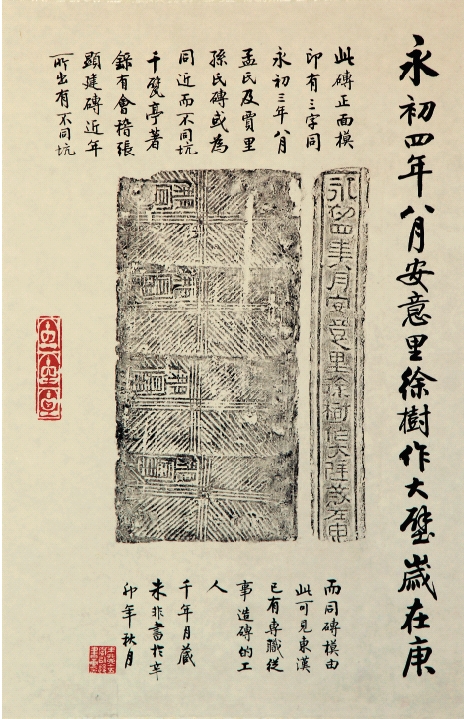 永初四年八月安意里徐樹作大壁歲在庚
此磚正面模
印有三字同
永初三年八月
孟氏及賈里
孫氏磚或為
同近而不同坑
千甓亭著
錄有會稽張
顯建磚近年
所出有不同坑
永初四年八月安意里徐樹作大壁歲在庚
而同磚模由
此可見東漢
已有專職從
事造磚的工
人
千年月藏
未非書於辛
卯年秋月